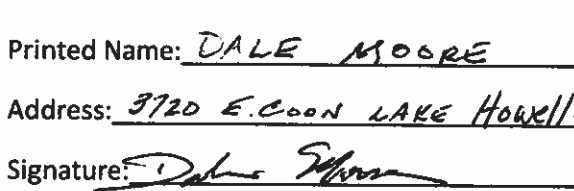 Printed Name: DALE MOORE
Address: 3720 E. COON LAKE Howell
Signature: